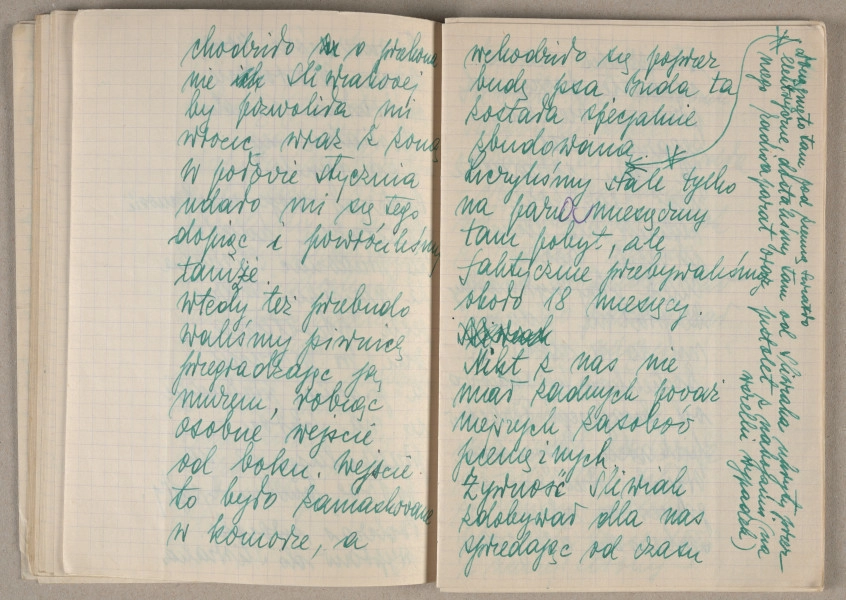 chodziło o przekona
nie Śliwiakowej
by pozwoliła mi
wrócić wraz z żoną
w połowie stycznia
udało mi się tego
dopiąc i powróciliśmy
tamże.
wtedy też przebudo
waliśmy piwnicę
przegradzając ją
murem, robiąc
osobne wejście
od boku. Wejście
to było zamaskowane
w komorze, a
wchodziło się poprzez
budę psa Buda ta
została specjalnie
zbudowana.
Liczyliśmy stale tylko
na paru miesięczny
tam pobyt, ale
faktycznie przebywaliśmy
około 18 miesięcy.
Nikt z nas nie
miał żadnych poważ
niejszych zasobów
pieniężnych.
Żywność Śliwiak
zdobywał dla nas
sprzedając od czasu
(Dociągnięto tam pod ziemią światło
elektryczne, dostaliśmy tam od Śliwiaka ukryty przez
niego radioaparat oraz pistolet z nabojami (na
wszelki wypadek)